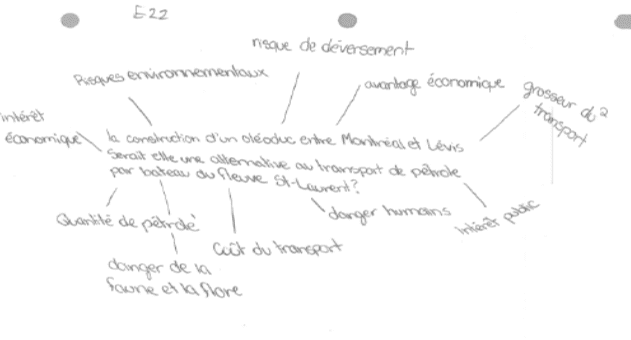 E22
risque de déversement
Risques environnementaux
avantage économique
grosseur du 2
transport
intérêt
économique
la construction d'un oléoduc entre Montréal et Lévis
Serait elle une alternative au transport de pétrole
par bateau du fleuve St-Laurent?
Quantité de pétrole
danger humains
Intérêt public
Coût du transport
danger de la
faune et la flore